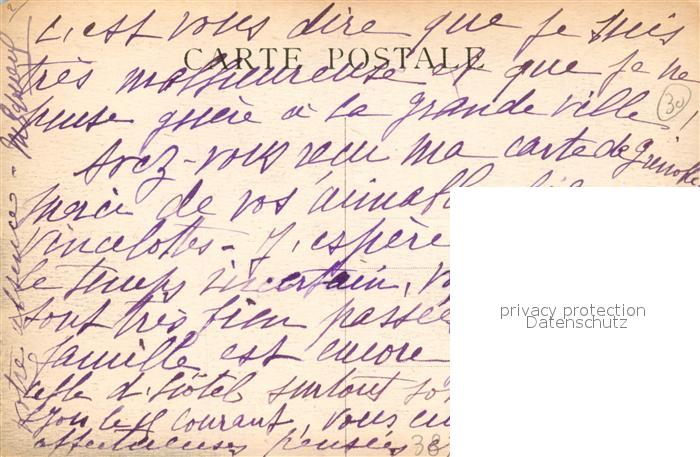 c'est vous dire que je suis
CARTE POSTALE
très malheureuse et que je ne
pense guère à la grande ville,
30
Avez-vous reçu ma carte de
merci de vos aimables
Vincelottes - J'espère
le temps incertain,
sont très bien passée
famille est encore
d'hôtel surtout
Lyon le courant, vous
affectueuses pensées
38
votre absence -
privacy protection
Datenschutz